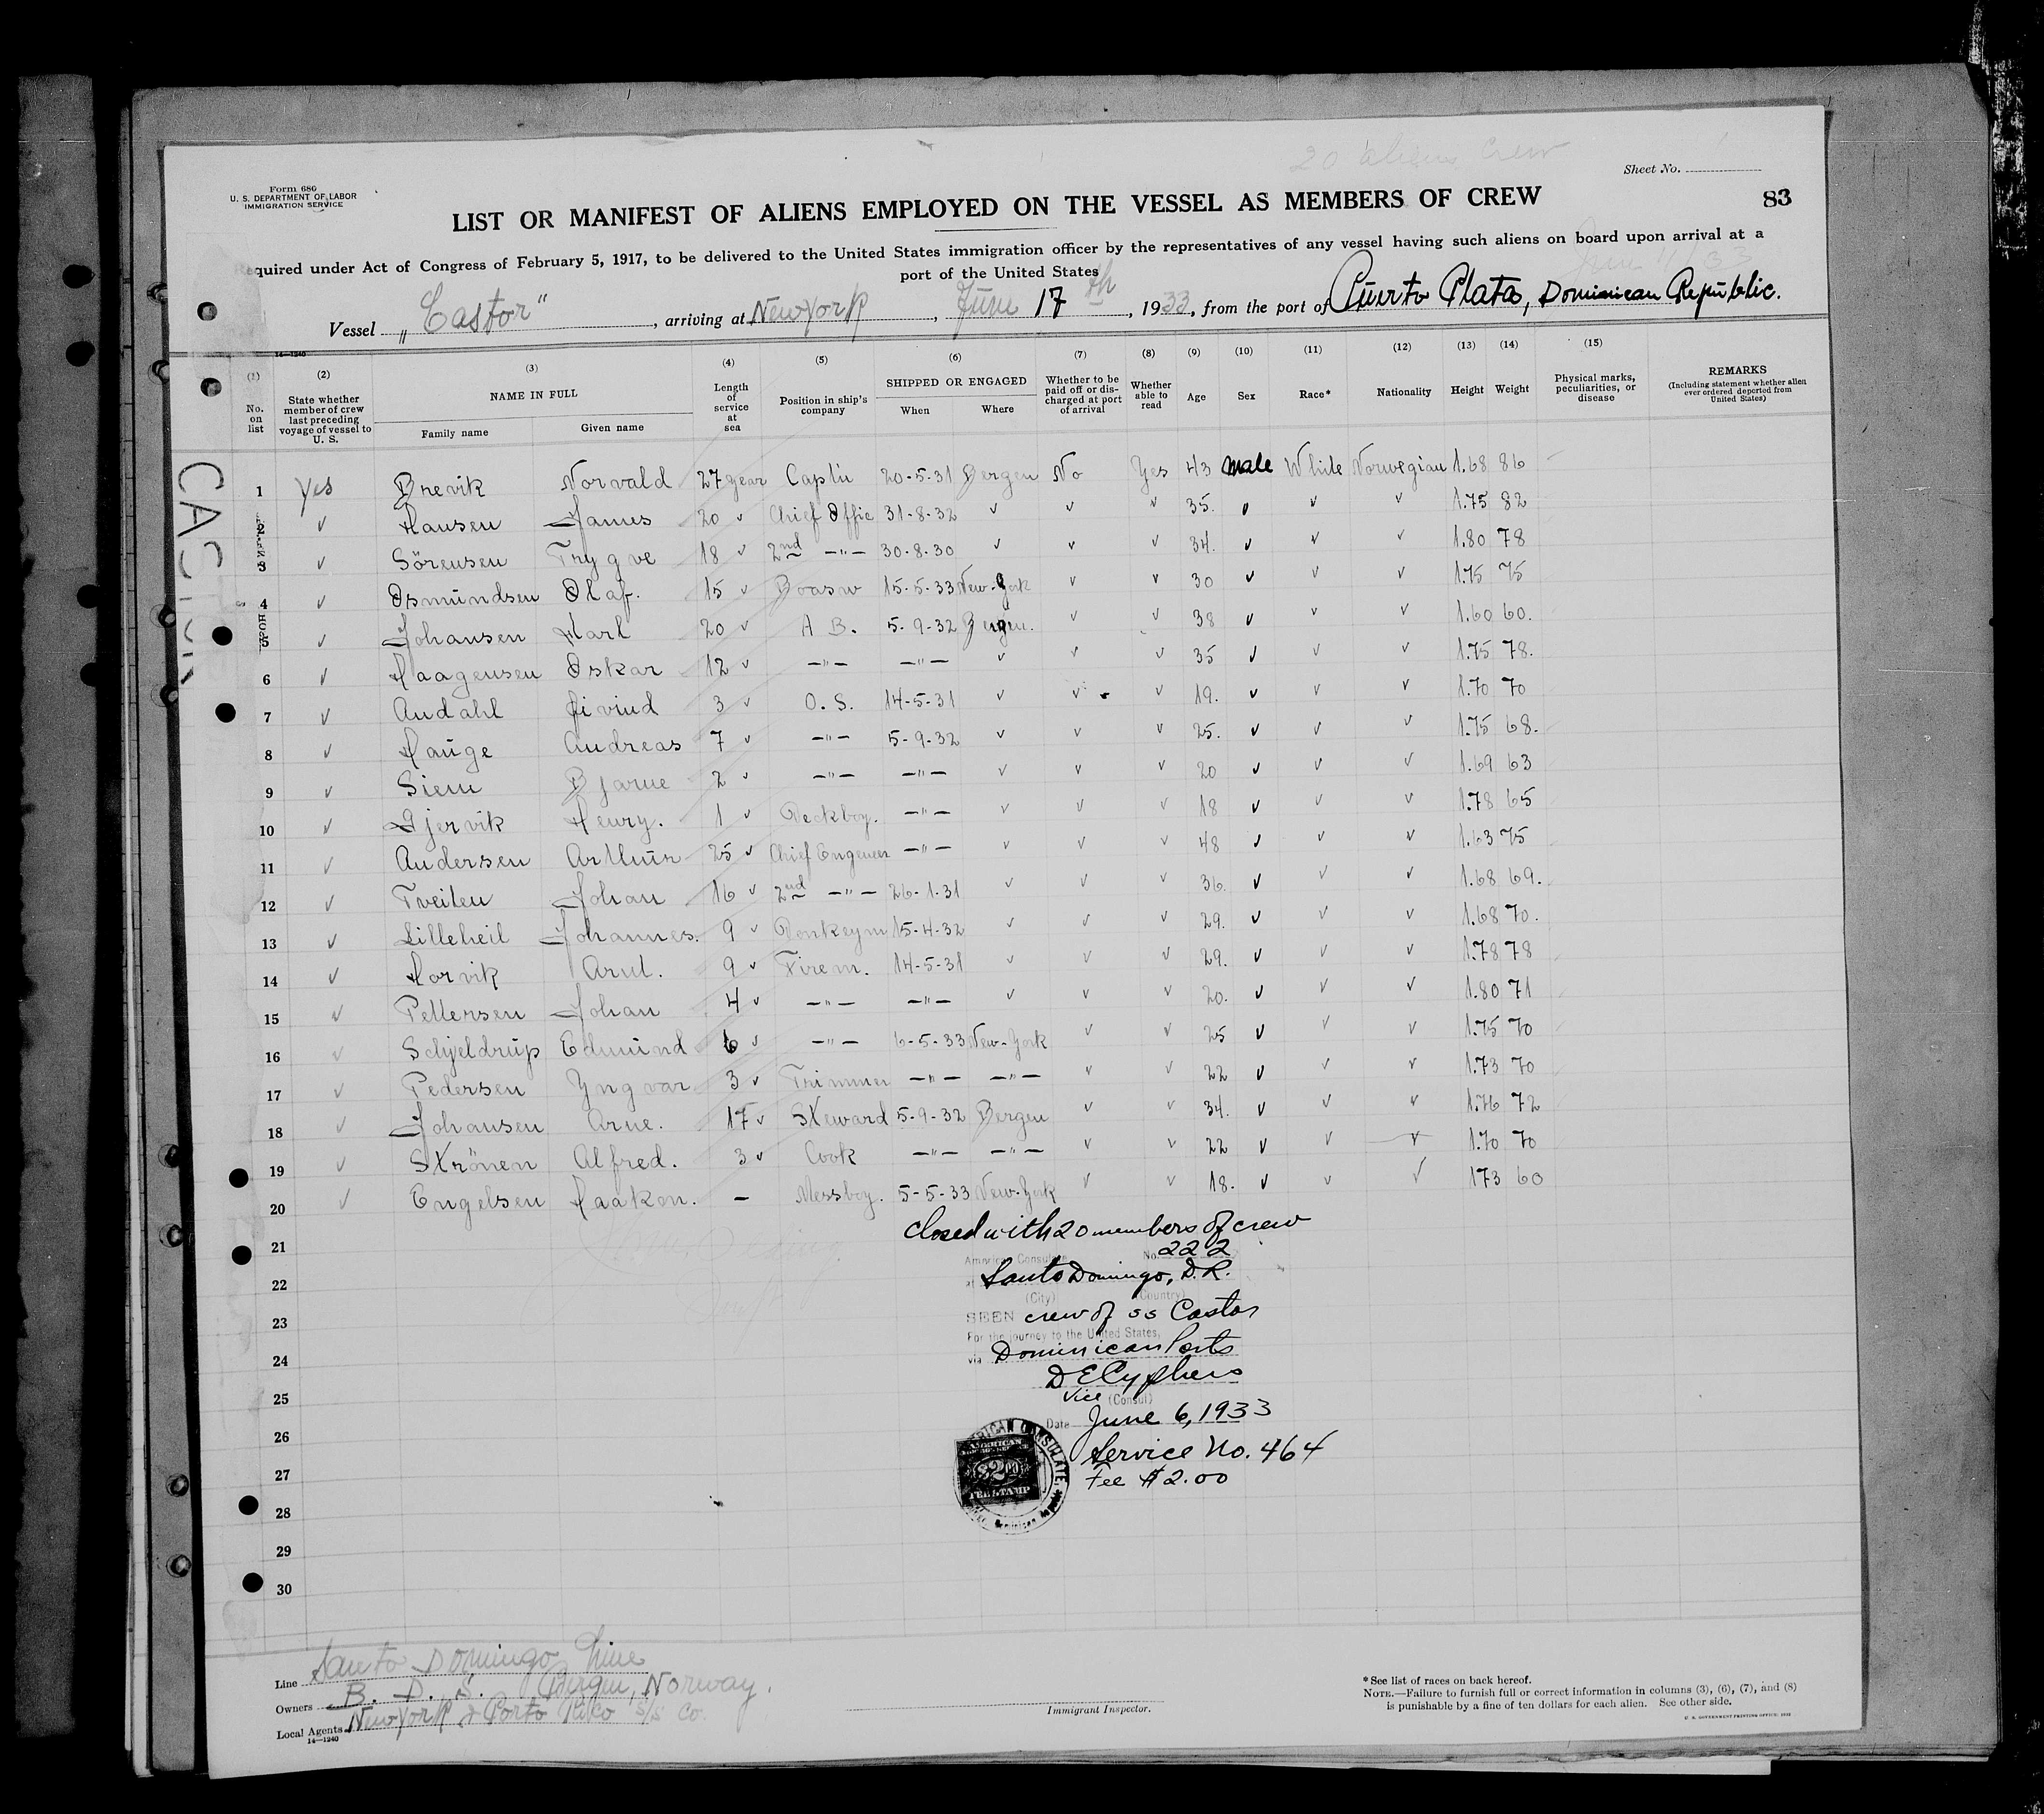 20 aliens crew
Sheet No.
Form 680
U. S. DEPARTMENT OF LABOR
IMMIGRATION SERVICE
83
LIST OR MANIFEST OF ALIENS EMPLOYED ON THE VESSEL AS MEMBERS OF CREW
Required under Act of Congress of February 5, 1917, to be delivered to the United States immigration officer by the representatives of any vessel having such aliens on board upon arrival at a
port of the United States
Vessel „Castor", arriving at New York, June 17th, 1933, from the port of Puerto Plata, Dominican Republic.
14—1240
(1) (2) (3) (4) (5) (6) (7) (8) (9) (10) (11) (12) (13) (14) (15)
No. on list
State whether member of crew last preceding voyage of vessel to U. S.
NAME IN FULL
Family name Given name
Length of service at sea
Position in ship's company
SHIPPED OR ENGAGED
When Where
Whether to be paid off or discharged at port of arrival
Whether able to read
Age Sex Race* Nationality Height Weight
Physical marks, peculiarities, or disease
REMARKS
(Including statement whether alien ever ordered deported from United States)
CASTOR
1 Yes Brevik Norvald 27 year Captn 20-5-31 Bergen No Yes 43 male White Norwegian 1.68 86
2 ✓ Hansen James 20 ✓ Chief Offic 31-8-32 ✓ ✓ ✓ 35. ✓ ✓ ✓ 1.75 82
3 ✓ Sörensen Trygve 18 ✓ 2nd —"— 30-8-30 ✓ ✓ ✓ 34. ✓ ✓ ✓ 1.80 78
4 ✓ Osmundsen Olaf. 15 ✓ Boasw 15-5-33 New-York ✓ ✓ 30 ✓ ✓ ✓ 1.75 75
5 ✓ Johansen Karl 20 ✓ A B. 5-9-32 Bergen. ✓ ✓ 38 ✓ ✓ ✓ 1.60 60.
6 ✓ Haagensen Oskar 12 ✓ —"— —"— ✓ ✓ ✓ 35 ✓ ✓ ✓ 1.75 78.
7 ✓ Andahl Öivind 3 ✓ O. S. 14-5-31 ✓ ✓ ✓ 19. ✓ ✓ ✓ 1.70 70
8 ✓ Hauge Andreas 7 ✓ —"— 5-9-32 ✓ ✓ ✓ 25. ✓ ✓ ✓ 1.75 68.
9 ✓ Siem Bjarne 2 ✓ —"— —"— ✓ ✓ ✓ 20 ✓ ✓ ✓ 1.69 63
10 ✓ Gjervik Henry. 1 ✓ Deckboy. —"— ✓ ✓ ✓ 18 ✓ ✓ ✓ 1.78 65
11 ✓ Andersen Arthur 25 ✓ Chief Engeneer —"— ✓ ✓ ✓ 48 ✓ ✓ ✓ 1.63 75
12 ✓ Tveiten Johan 16 ✓ 2nd —"— 26-1-31 ✓ ✓ ✓ 36. ✓ ✓ ✓ 1.68 69.
13 ✓ Lilleheil Johannes. 9 ✓ Donkeym 15-4-32 ✓ ✓ ✓ 29. ✓ ✓ ✓ 1.68 70.
14 ✓ Horvik Arnt. 9 ✓ Firem. 14-5-31 ✓ ✓ ✓ 29. ✓ ✓ ✓ 1.78 78
15 ✓ Pettersen Johan 4 ✓ —"— —"— ✓ ✓ ✓ 20. ✓ ✓ ✓ 1.80 71
16 ✓ Schjeldrup Edmund 6 ✓ —"— 6-5-33 New-York ✓ ✓ 25 ✓ ✓ ✓ 1.75 70
17 ✓ Pedersen Yngvar 3 ✓ Trimmer —"— —"— ✓ ✓ 22 ✓ ✓ ✓ 1.73 70
18 ✓ Johansen Arne. 17 ✓ Steward 5-9-32 Bergen ✓ ✓ 34. ✓ ✓ ✓ 1.76 72
19 ✓ Skrönen Alfred. 3 ✓ Cook —"— —"— ✓ ✓ 22 ✓ ✓ ✓ 1.70 70
20 ✓ Engelsen Haakon. — Messboy. 5-5-33 New-York ✓ ✓ 18. ✓ ✓ ✓ 173 60
Closed with 20 members of crew
21
American Consulate No. 222
22
at Santo Domingo, D.R.
(City) (Country)
23
SEEN crew of ss Castor
For the journey to the United States,
24
via Dominican Ports
D E Cyphers
25
Vice (Consul)
Date June 6, 1933
26
Service No. 464
27
Fee $2.00
AMERICAN CONSULATE
AMERICAN
$2.00
FEE STAMP
28
29
30
Line Santo Domingo Line
Owners B. D. S. Bergen, Norway.
Local Agents New York & Porto Rico S/S Co.
14—1240
Immigrant Inspector.
* See list of races on back hereof.
NOTE.—Failure to furnish full or correct information in columns (3), (6), (7), and (8)
is punishable by a fine of ten dollars for each alien. See other side.
U. S. GOVERNMENT PRINTING OFFICE: 1932